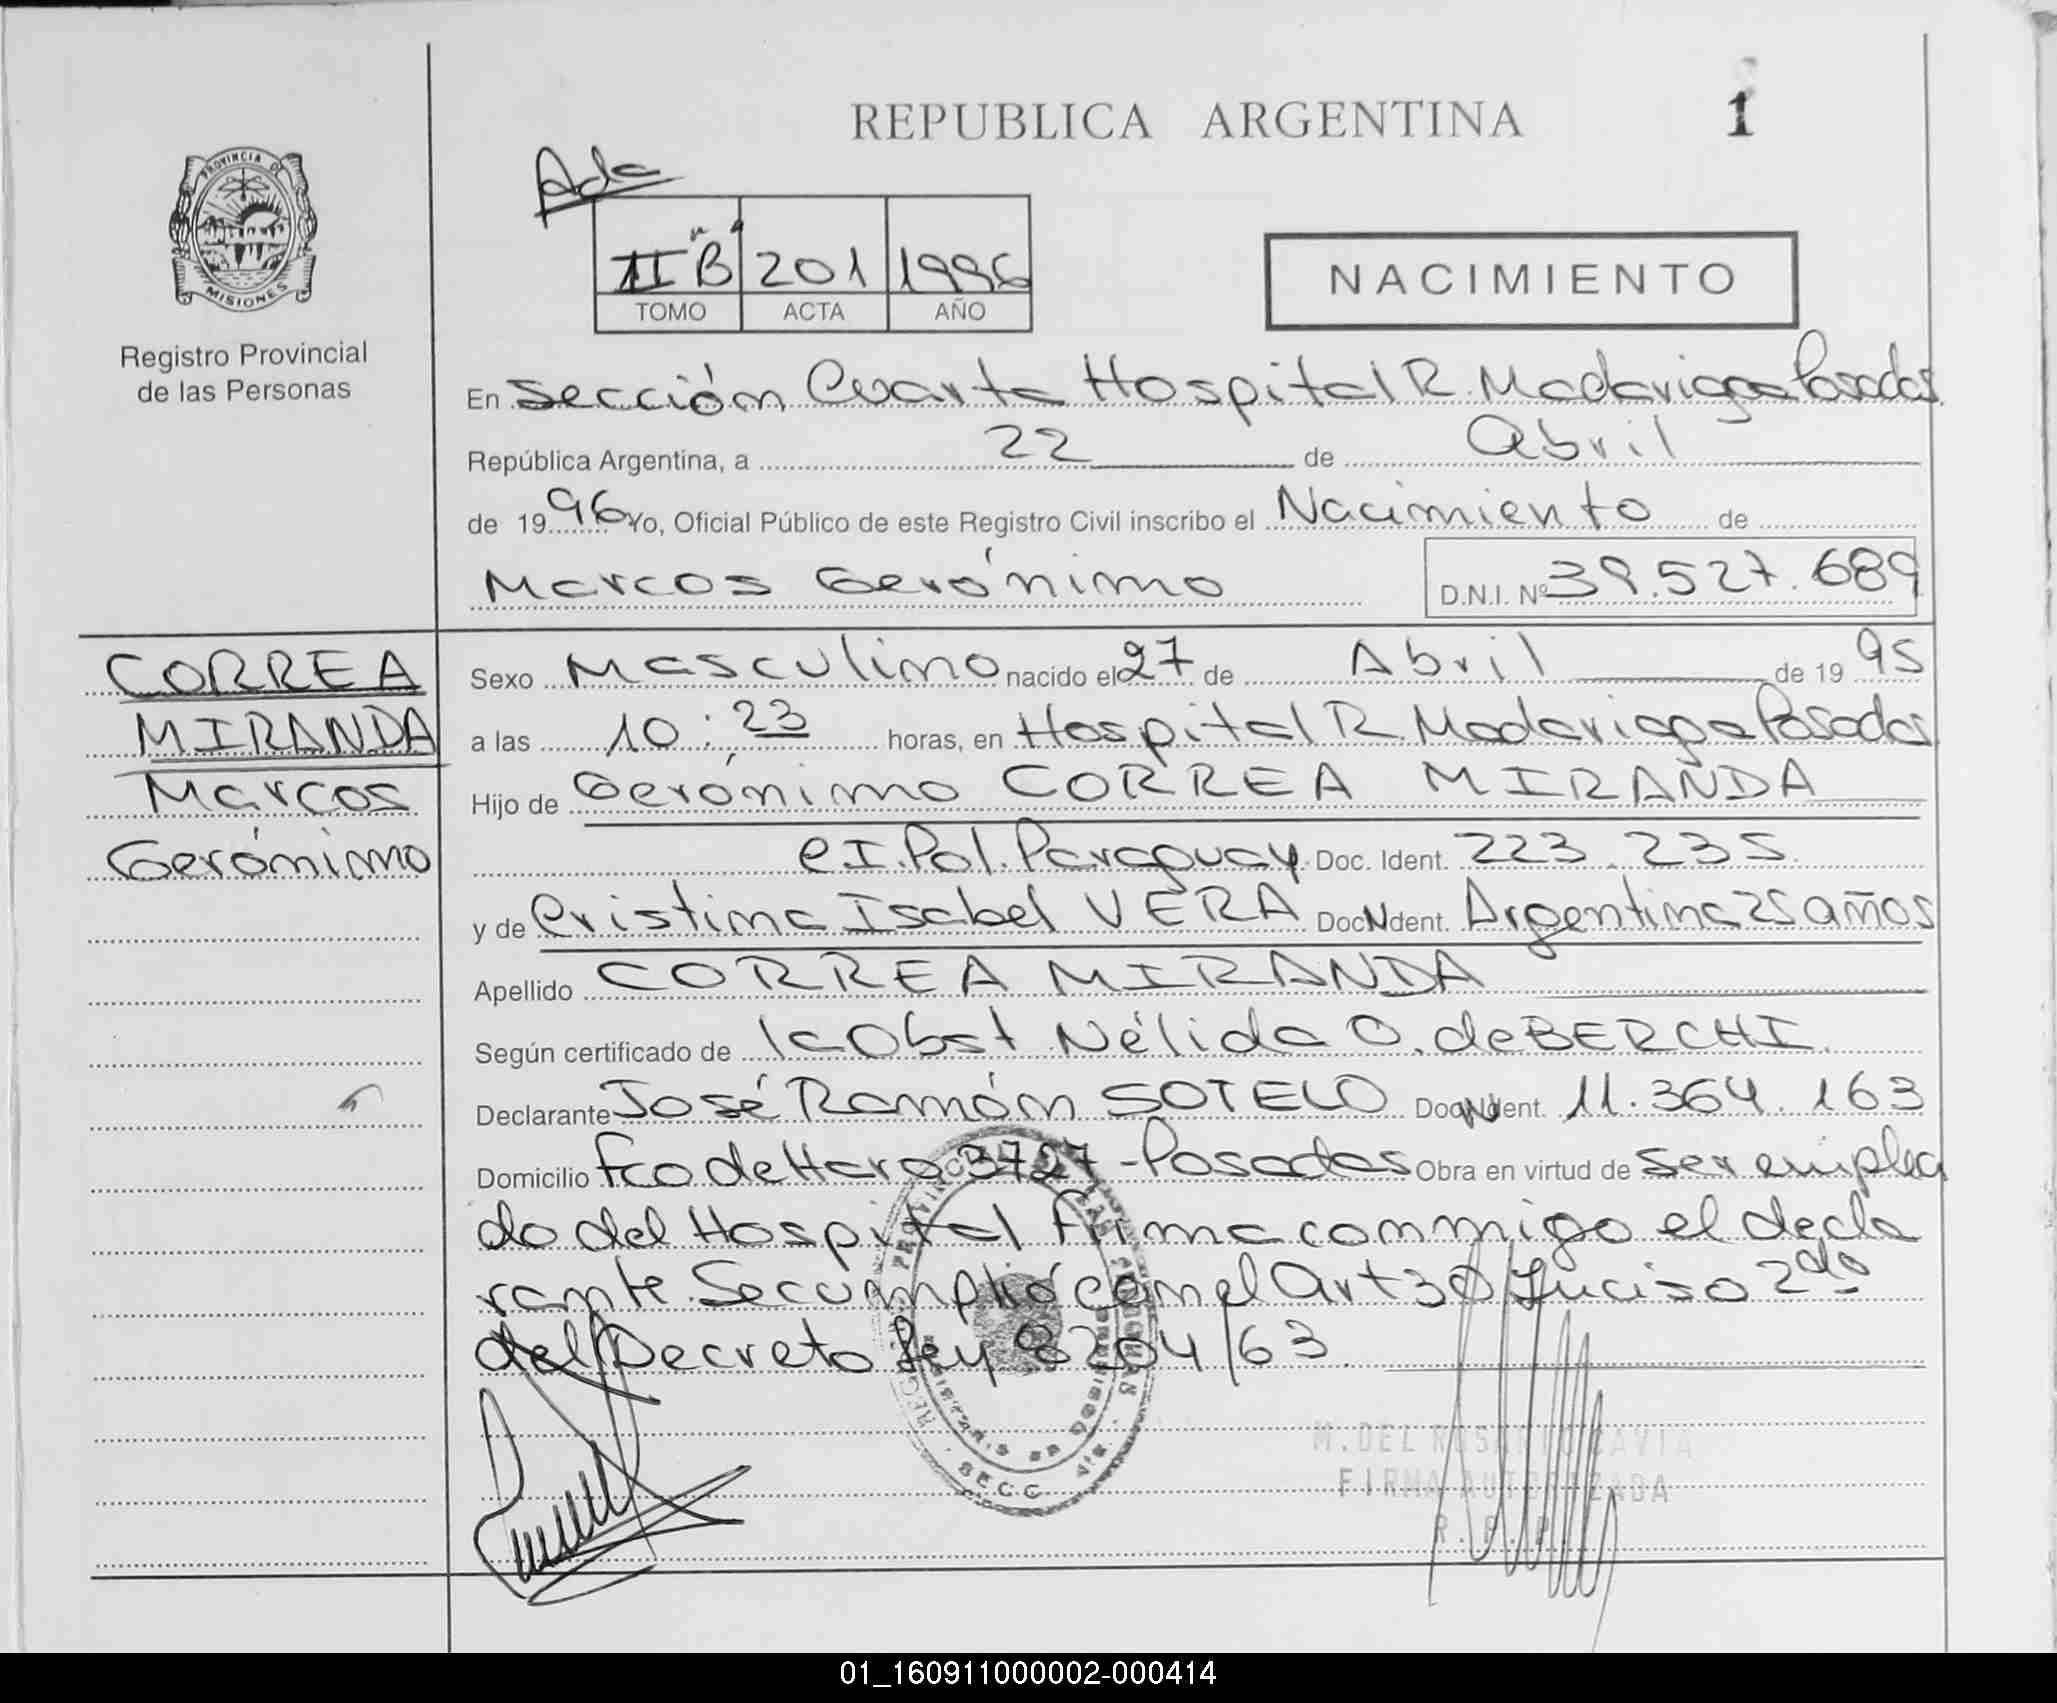 REPUBLICA ARGENTINA
1
Ada
PROVINCIA D
MISIONES
II "B"
201
1996
TOMO
ACTA
AÑO
NACIMIENTO
Registro Provincial
de las Personas
En Sección Cuarta Hospital R. Madariaga Posadas
República Argentina, a 22 de Abril
de 1996 Yo, Oficial Público de este Registro Civil inscribo el Nacimiento de
Marcos Gerónimo D.N.I. Nº 39.527.689
CORREA
MIRANDA
Marcos
Gerónimo
Sexo Masculino nacido el 27 de Abril de 1995
a las 10:23 horas, en Hospital R. Madariaga Posadas
Hijo de Gerónimo CORREA MIRANDA
C.I. Pol. Paraguay Doc. Ident. 223.235
y de Cristina Isabel VERA Doc N Ident. Argentina 25 años
Apellido CORREA MIRANDA
Según certificado de la Obst Nélida O. de BERCHI
Declarante José Ramón SOTELO Doc. Ident. 11.364.163
Domicilio Fco de Haro 3727 - Posadas Obra en virtud de ser emplea
do del Hospital Firma conmigo el decla
rante. Se cumplió con el Art 30 Inciso 2do
del Decreto Ley 8204/63
M. DEL ROSARIO CAVIA
FIRMA AUTORIZADA
R. P. P.
01_160911000002-000414